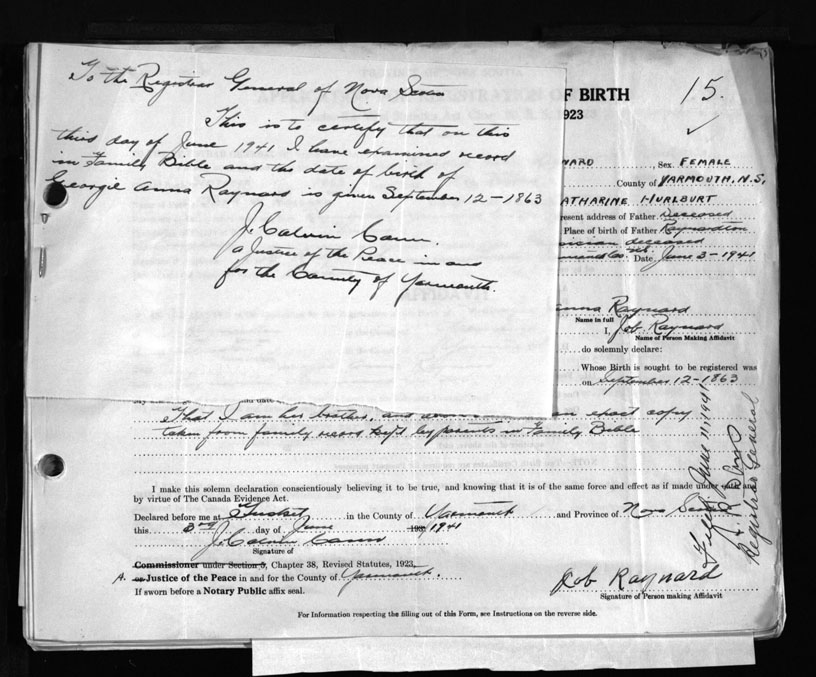 To the Registrar General of Nova Scotia
This is to certify that on this
third day of June 1941 I have examined record
in Family Bible and the date of birth of
Georgie Anna Raynard is given September 12-1863
J. Calvin Cann.
a Justice of the Peace in and
for the County of Yarmouth.
F BIRTH
15.
923
Sex FEMALE
County of YARMOUTH, N.S.
ATHARINE HURLBURT
resent address of Father Deceased
Place of birth of Father Raynardton
sician deceased
Date June 3-1941
anna Raynard
Name in full
I, Job Raynard
Name of Person Making Affidavit
do solemnly declare:
Whose Birth is sought to be registered was
on September 12-1863
That I am her brother, and an exact copy
taken from family record kept by parents in Family Bible
I make this solemn declaration conscientiously believing it to be true, and knowing that it is of the same force and effect as if made under oath and
by virtue of The Canada Evidence Act.
Declared before me at Tusket in the County of Yarmouth and Province of Nova Scotia
this 3rd day of June 1941
J. Calvin Cann
Signature of
Commissioner under Section 5, Chapter 38, Revised Statutes, 1923,
A. or Justice of the Peace in and for the County of Yarmouth.
If sworn before a Notary Public affix seal.
Job Raynard
Signature of Person making Affidavit
For Information respecting the filling out of this Form, see Instructions on the reverse side.
Filed June 11, 1941
Registrar General